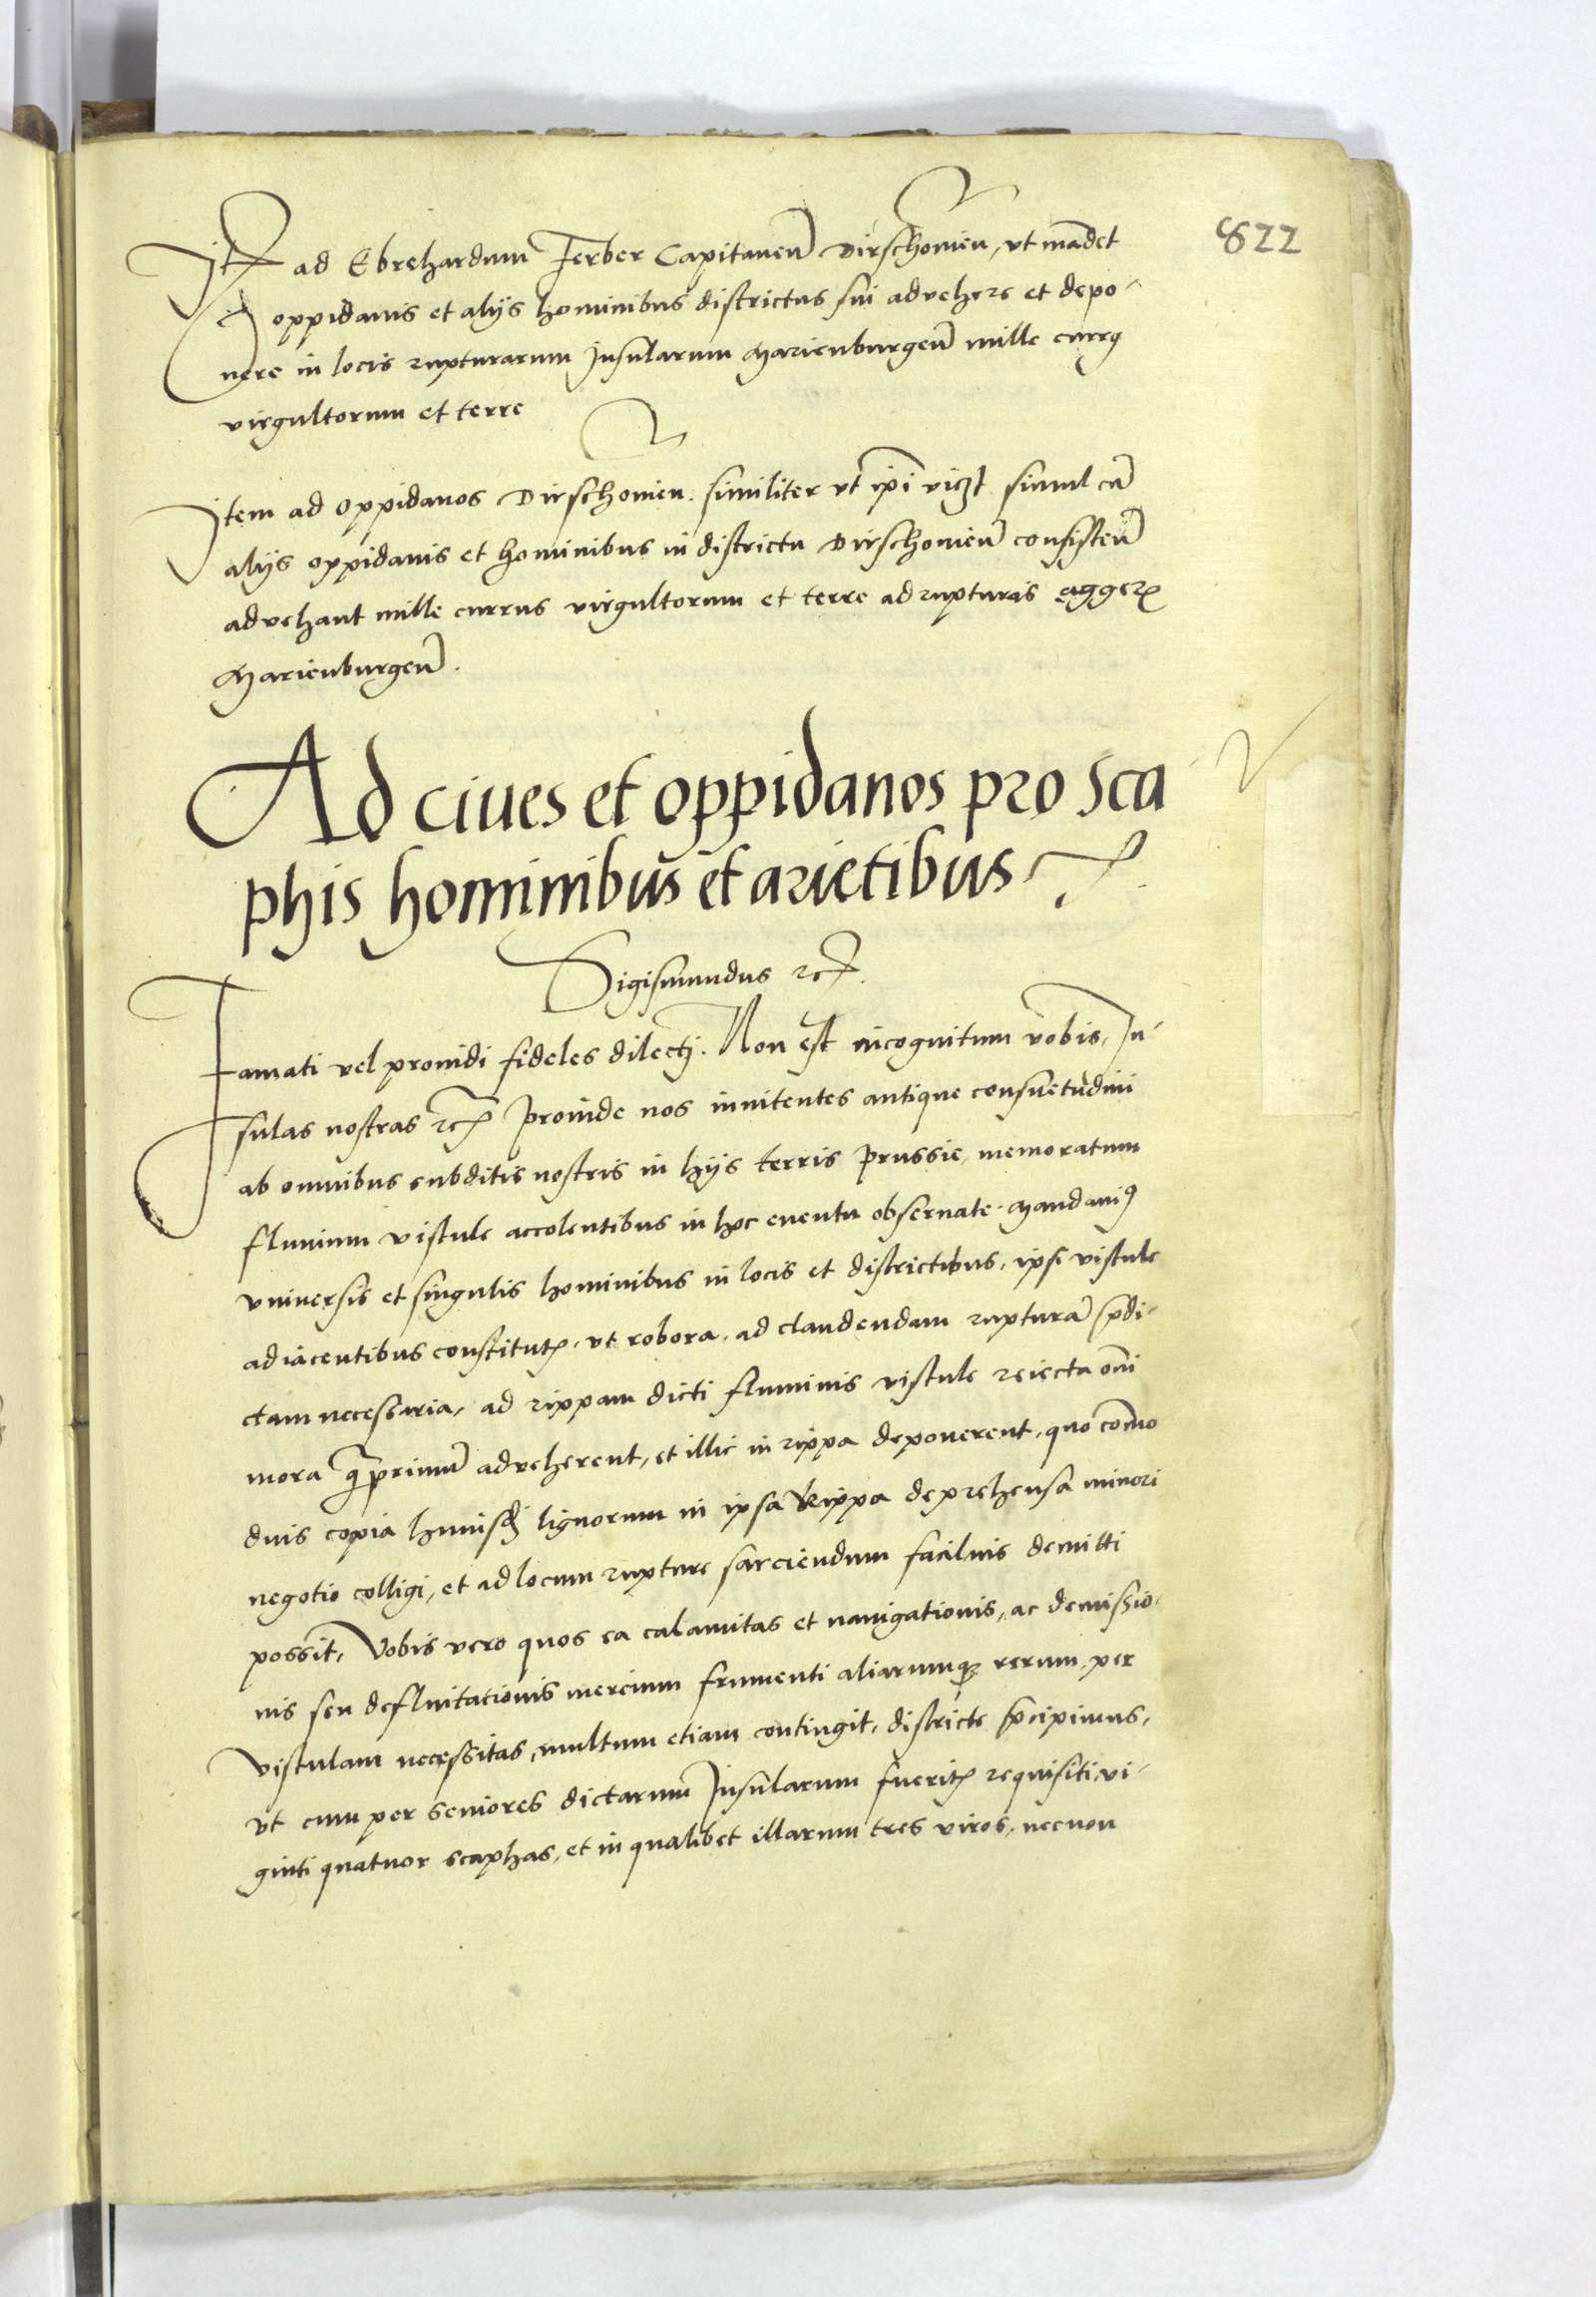 822
Jt ad Ebrehardum Ferber Capitaneum Dirschouien, vt mādet
oppidanis et alijs hominibus districtus sui advehere et depo-
nere in locis rupturarum Jnsularum Marienburgeñ mille currꝰ
virgultorum et terre
Jtem ad oppidanos Dirschouien. similiter vt ip̄i vicȝt simul cū
alijs oppidanis et hominibus in districtu Dirschouieñ consisteñ
advehant mille currus virgultorum et terre ad rupturas aggerꝝ
Marienburgeñ.
Ad ciues et oppidanos pro sca
phis hominibus et arietibus
Sigismundus ⁊c.
Famati vel prouidi fideles dilectj. Non est incognitum vobis, Jn-
sulas nostras ⁊c Proinde nos innitentes antique consuetudini
ab omnibus subditis nostris in hijs terris Prussie, memoratum
fluuium Vistule accolentibus in hoc euentu obseruate. Mandauimꝰ
vniuersis et singulis hominibus in locis et districtibus, ipsi vistule
adiacentibus constitutꝭ, vt robora, ad claudendam rupturā p̄di-
ctam necessaria, ad rippam dicti fluminis vistule reiecta om̄i
mora q̄primū adveherent, et illic in rippa deponerent, quo com̄o
dius copia huiusꝺ lignorum in ipsa Rippa deprehensa minori
negotio colligi, et ad locum rupture sarciendum facilius demitti
possit, Vobis vero quos ea calamitas et nauigationis, ac demissio-
nis seu defluitationis mercium frumenti aliarumqꝫ rerum per
Vistulam necessitas, multum etiam contingit, districte p̄cipimus,
vt cum per seniores dictarum Jnsularum fueritꝭ requisiti, vi-
ginti quatuor scaphas, et in qualibet illarum tres viros, necnon